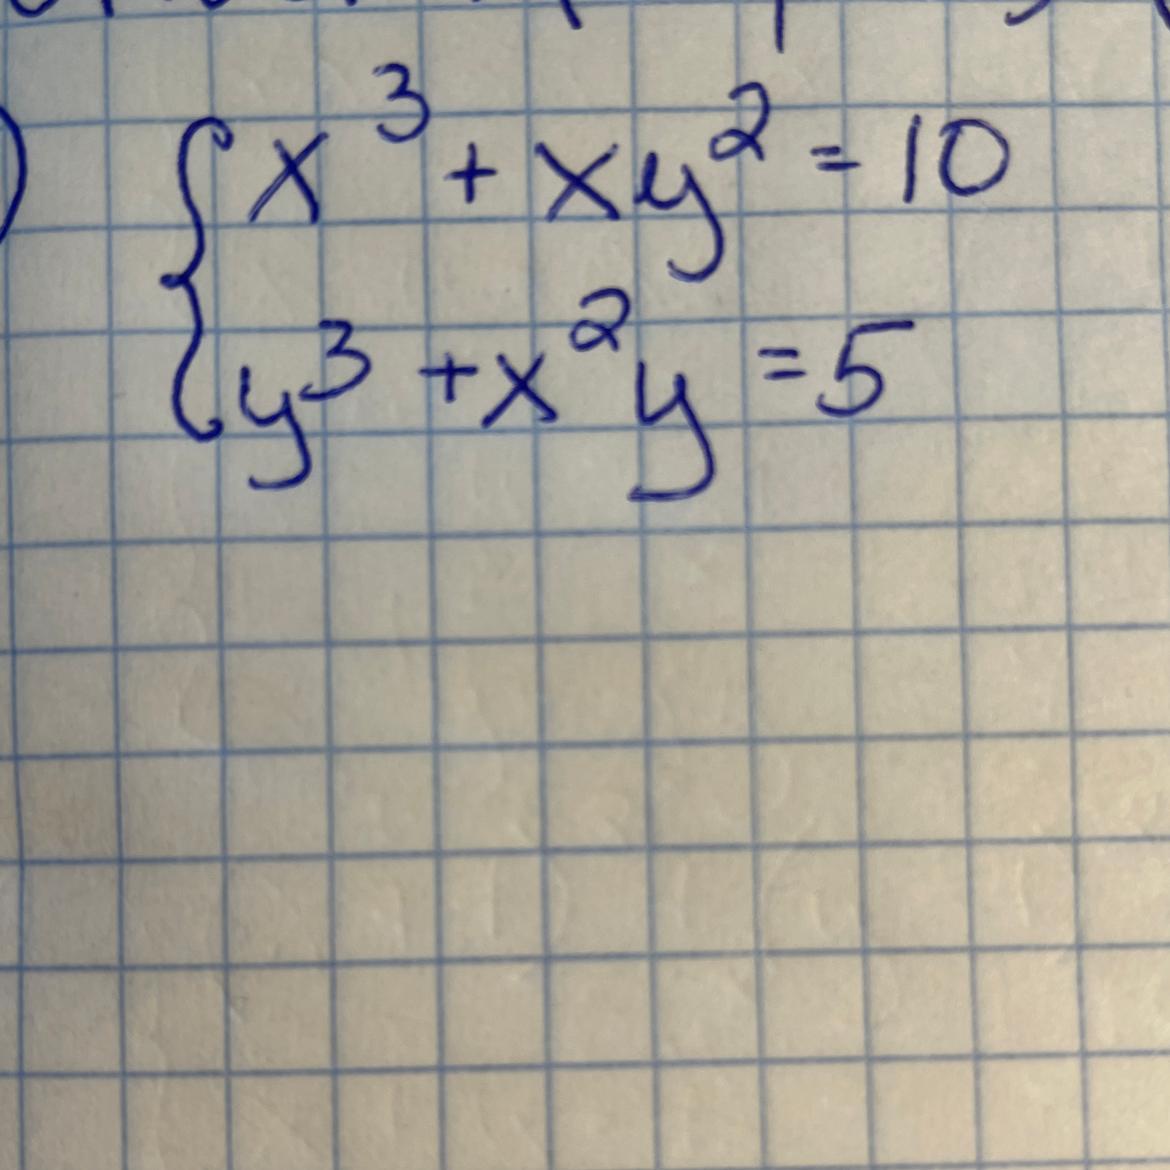 x³ + xy² = 10
y³ + x²y = 5